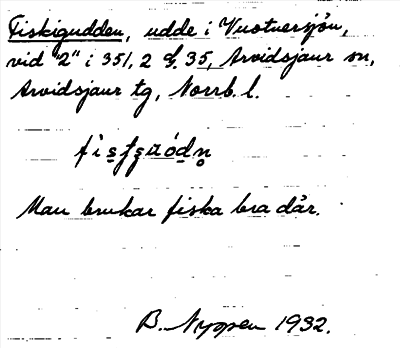 Fiskigudden, udde i Vuotnersjön,
vid "2" i 351, 2 d. 35, Arvidsjaur sn,
Arvidsjaur tg, Norrb. l.
Man brukar fiska bra där.
B. Nyppen 1932.